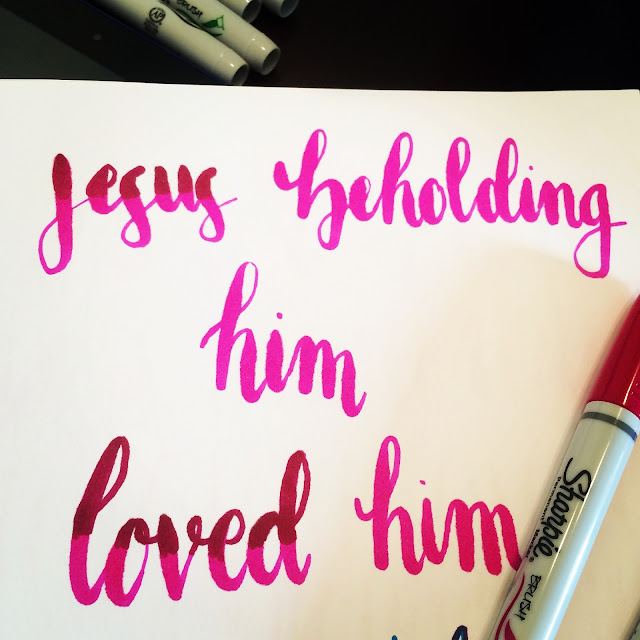 jesus beholding
him
loved him
Sharpie
BRUSH
BRUSH